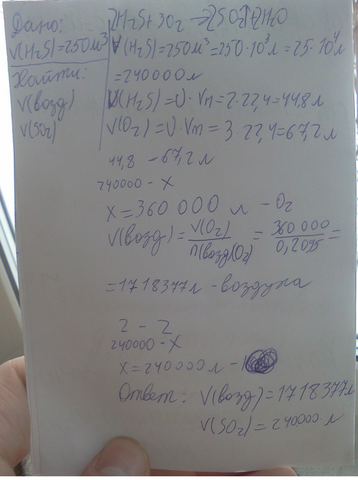 Дано:
V(H₂S)=250м³
Найти:
V(возд)
V(SO₂)
2H₂S+3O₂→2SO₂↑+2H₂O
V(H₂S)=250м³=250·10³л=25·10⁴л
=240000л
V(H₂S)=υ·Vm=2·22,4=44,8л
V(O₂)=υ·Vm=3·22,4=67,2л
44,8 – 67,2л
240000 – x
x=360 000 л – O₂
V(возд)=V(O₂)/η(возд(O₂)=360 000/0,2095=
=1718377л – воздуха
2 – 2
240000 – x
x=240000л –
Ответ: V(возд)=1718377л
V(SO₂)=240000 л